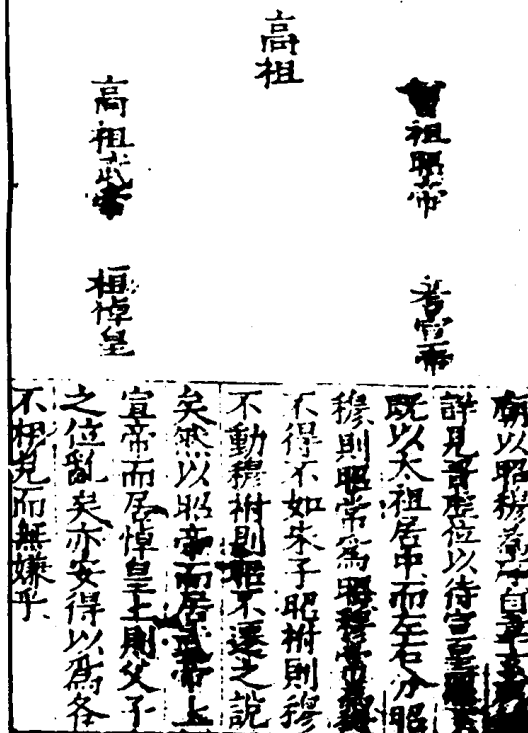 曾祖昭帝
考宣帝
高祖
高祖武帝
祖悼皇
以昭穆
詳見虛位以待宣皇
既以太祖居中而左右分昭
穆則昭常爲昭穆常爲穆
不得不如朱子昭祔則穆
不動穆祔則昭不遷之說
矣然以昭帝而居武帝上
宣帝而居悼皇上則父子
之位亂矣亦安得以爲各
不相見而無嫌乎